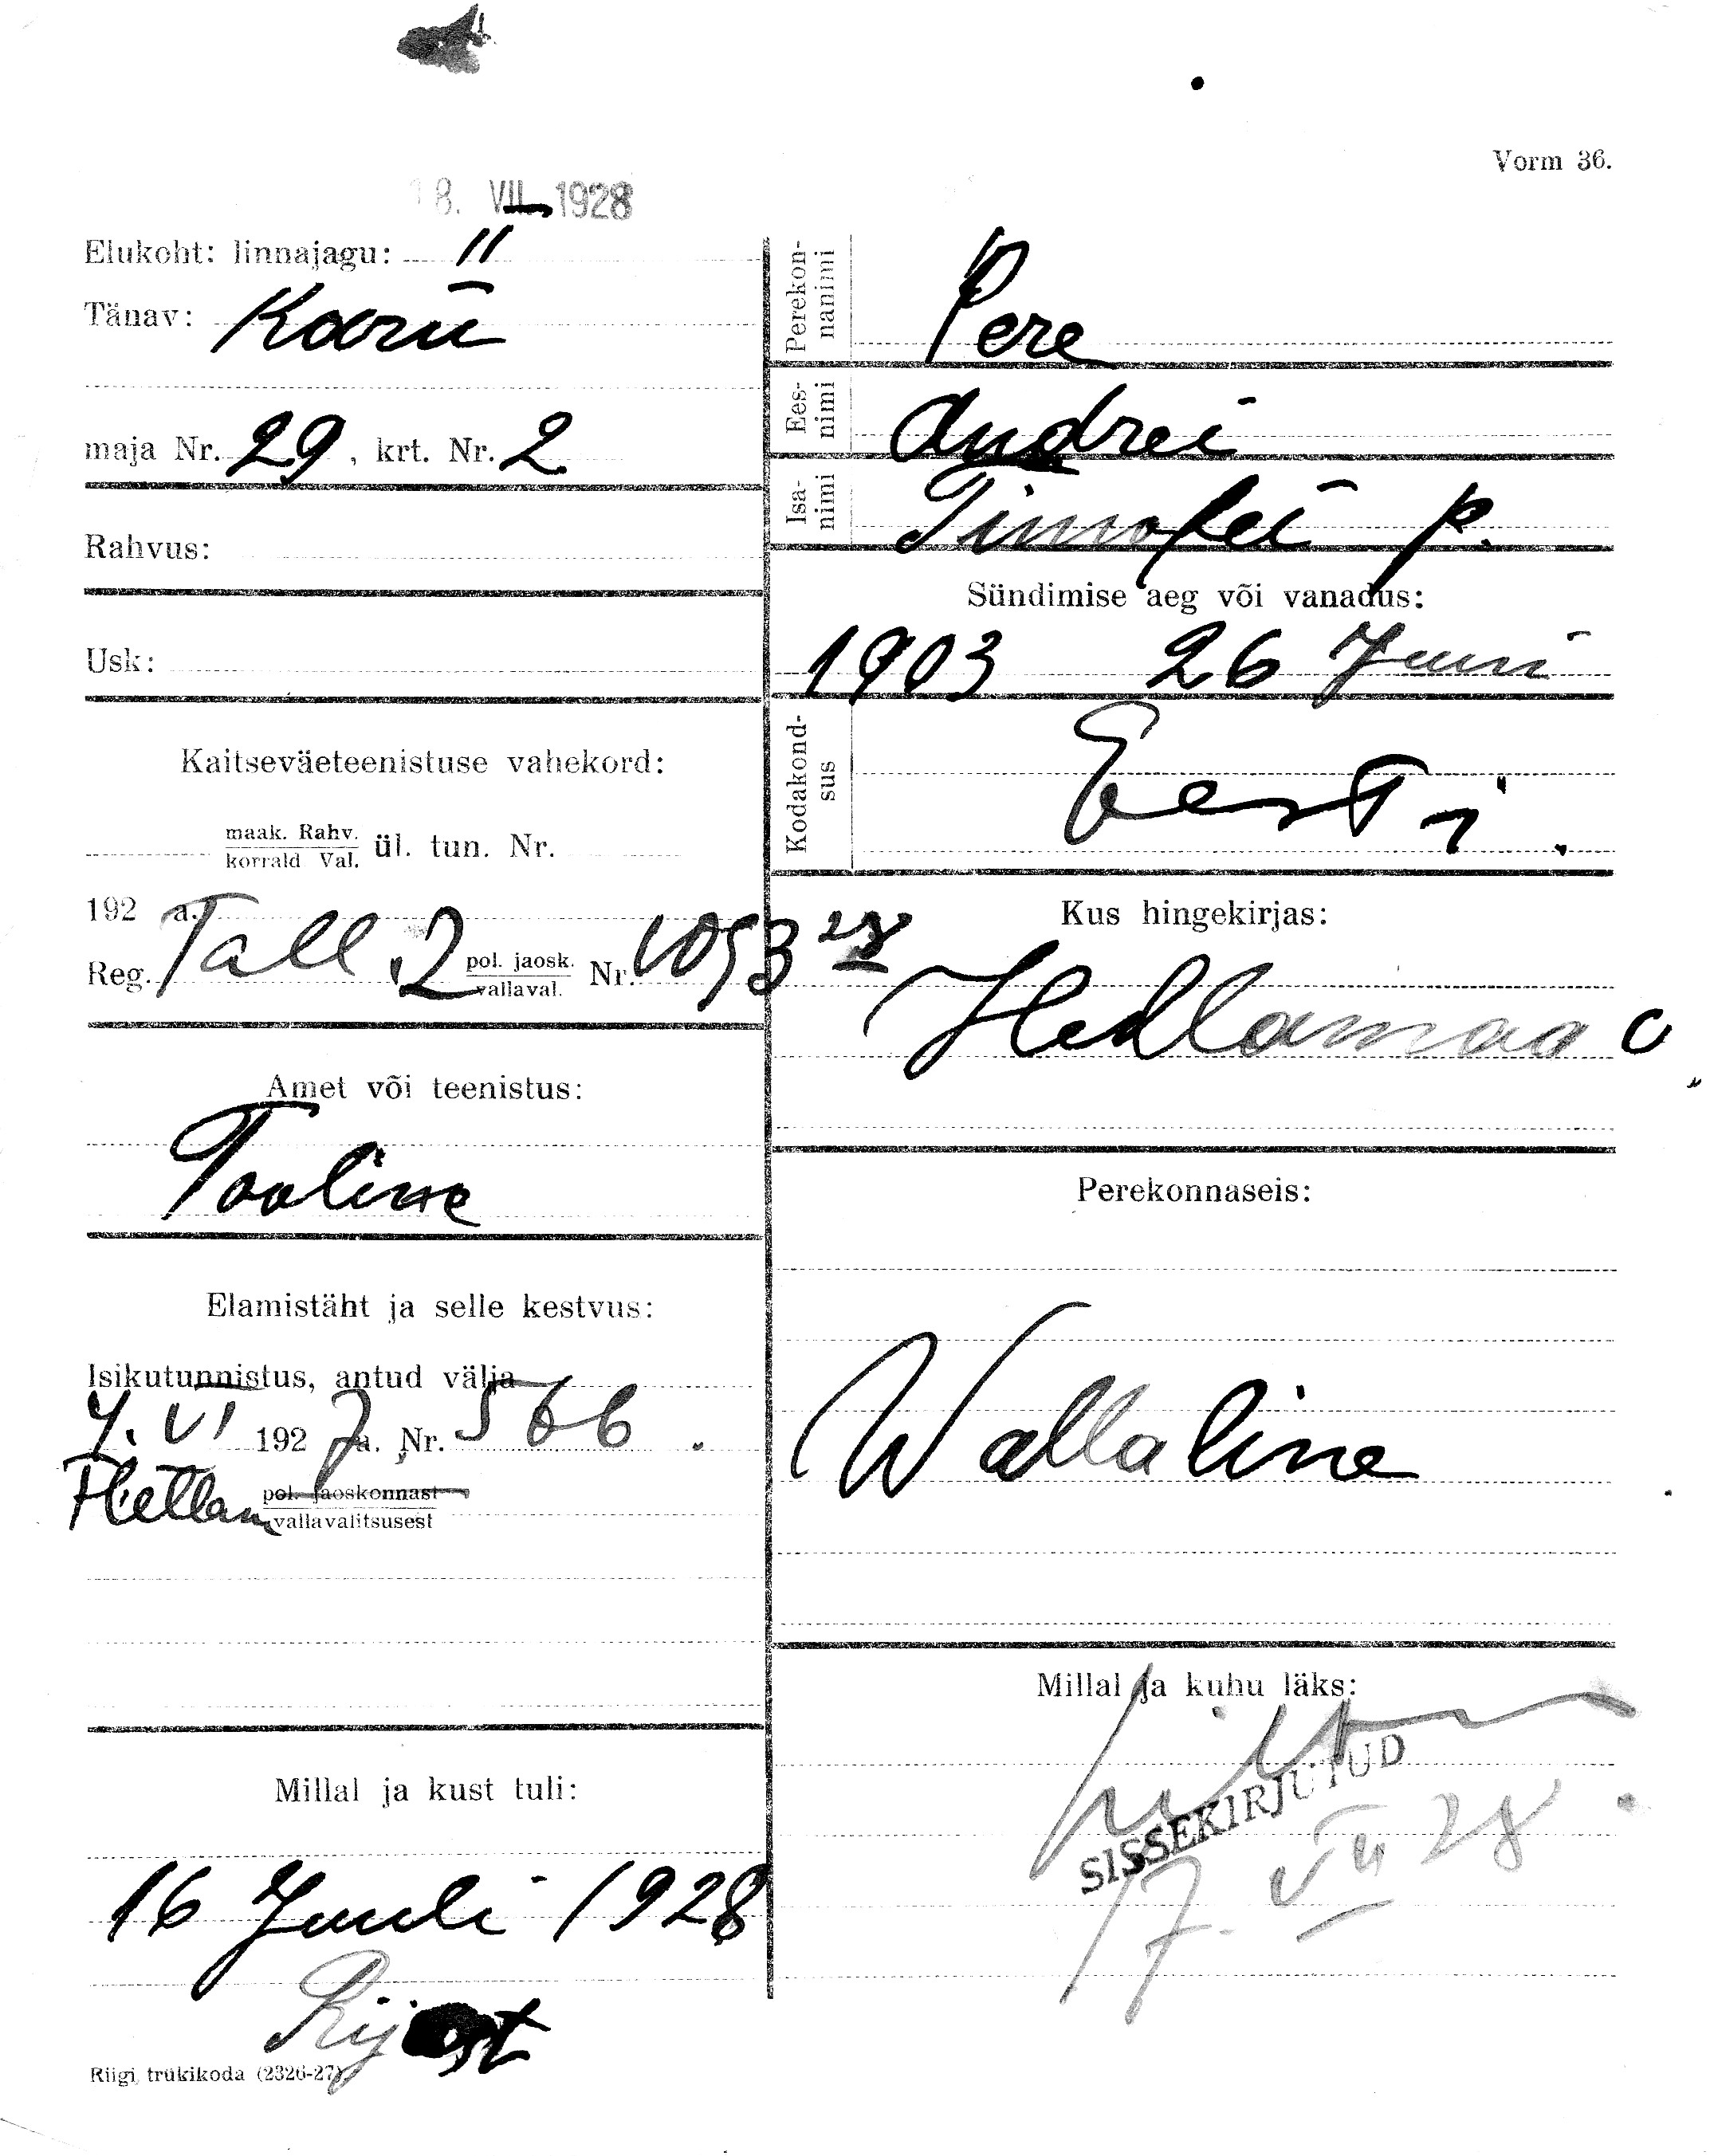 Vorm 36.
18. VII 1928
Elukoht: linnajagu: II
Tänav: Karu
maja Nr. 29, krt. Nr. 2
Rahvus:
Usk:
Kaitseväeteenistuse vahekord:
maak. Rahv.
korrald Val. ül. tun. Nr.
192 a.
Reg. Tall. 2 pol. jaosk. Nr. 1053 28
vallaval.
Amet või teenistus:
Tööline
Elamistäht ja selle kestvus:
Isikutunnistus, antud välja
4. VI 1927 a. Nr. 566.
pol. jaoskonnast
vallavalitsusest
Millal ja kust tuli:
16 Juuli 1928
Riigi trükikoda (2326-27)
Perekon-
nanimi
Pere
Ees-
nimi
Andrei
Isa-
nimi
Timofei p.
Sündimise aeg või vanadus:
1903 26 Juni
Kodakond-
sus
Eesti.
Kus hingekirjas:
Perekonnaseis:
Wallaline
Millal ja kuhu läks:
SISSEKIRJUTUD
17. VII 28